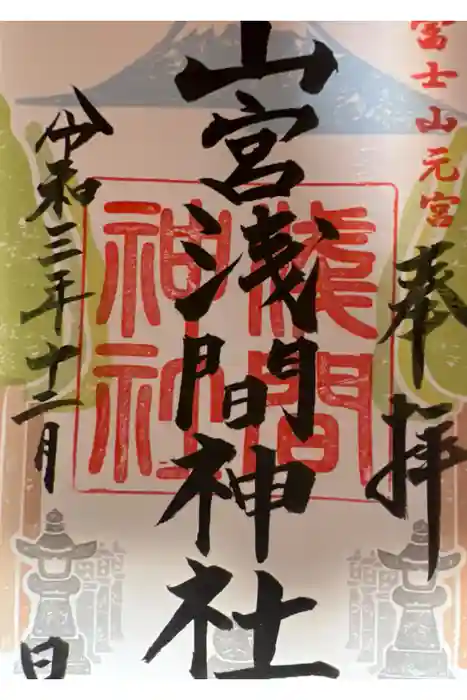 富士山元宮
奉拝
山宮浅間神社
淺間
神社
令和三年十二月 日